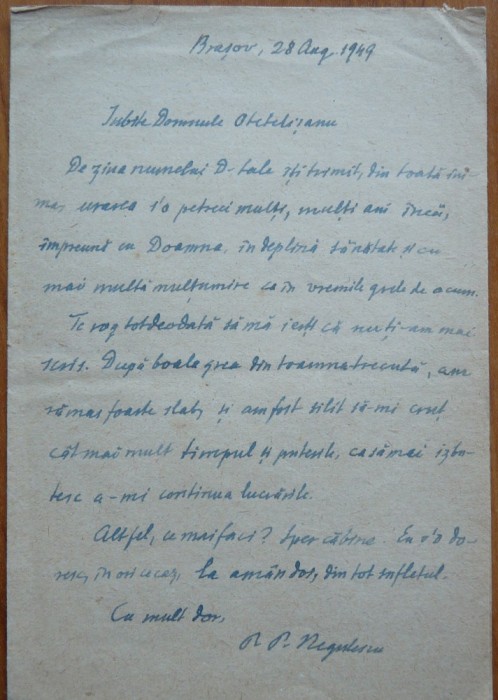 Brașov, 28 Aug. 1949
Iubite Domnule Otetelișanu
De ziua numelui D-tale îți trimit, din toată ini-
ma, urarea s'o petreci mulți, mulți ani încă,
împreună cu Doamna, în deplină sănătate și cu
mai multă mulțumire ca în vremile grele de acum.
Te rog totdeodată să mă ierți că nu ți-am mai
scris. După boala grea din toamna trecută, am
rămas foarte slab, și am fost silit să-mi cruț
cât mai mult timpul și puterile, ca să mai izbu-
tesc a-mi continua lucrările.
Altfel, ce mai faci? Sper că bine. Eu v'o do-
resc, în orice caz, la amândoi, din tot sufletul.
Cu mult dor,
P. P. Negulescu